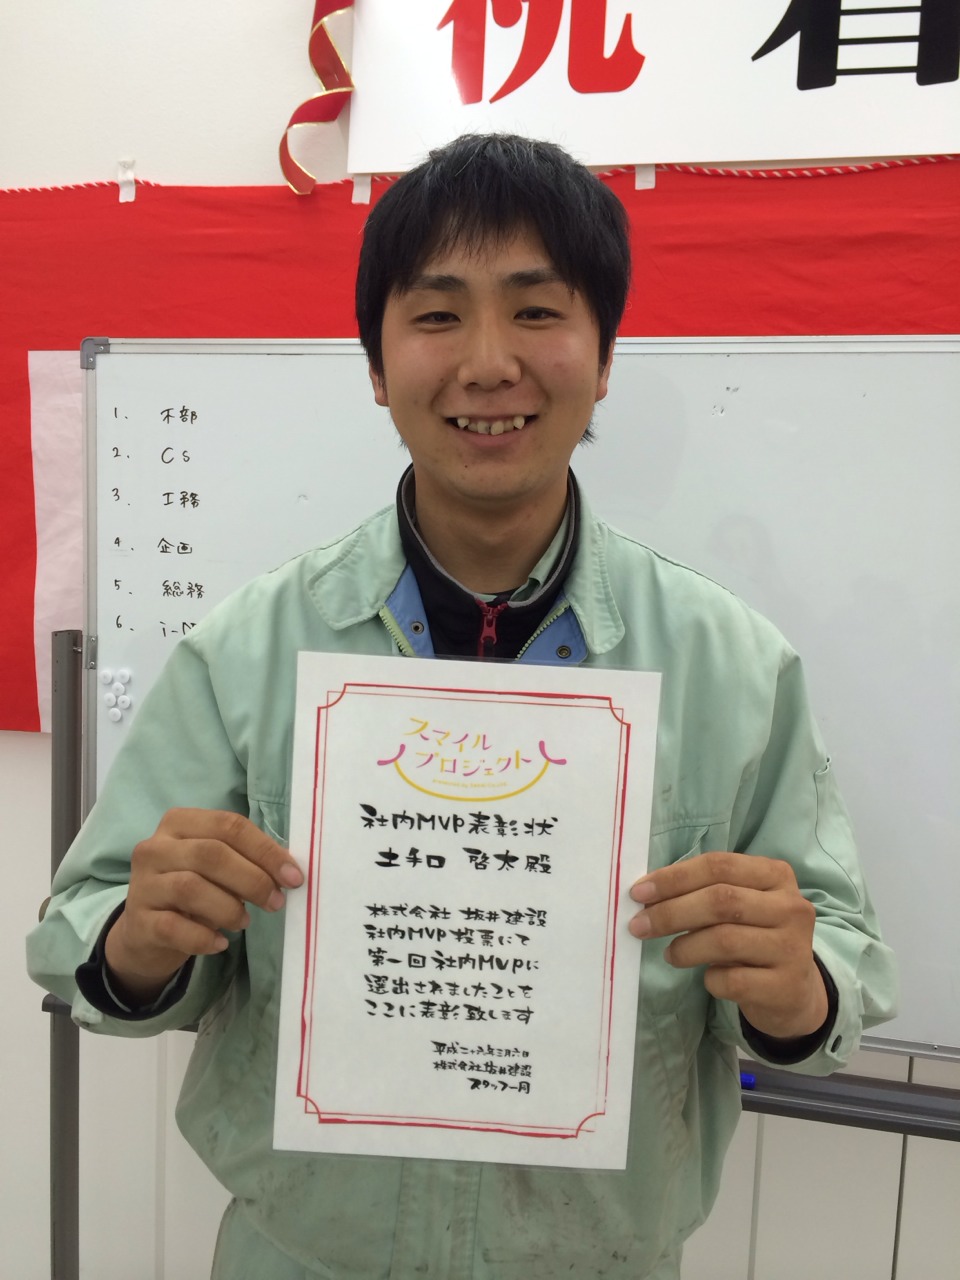 祝 着
1. 木部
2. CS
3. 工務
4. 企画
5. 総務
6. i-
スマイル
プロジェクト
社内MVP表彰状
土手口 啓太殿
株式会社 坂井建設
社内MVP投票にて
第一回社内MVPに
選出されましたことを
ここに表彰致します
平成二十六年三月六日
株式会社坂井建設
スタッフ一同